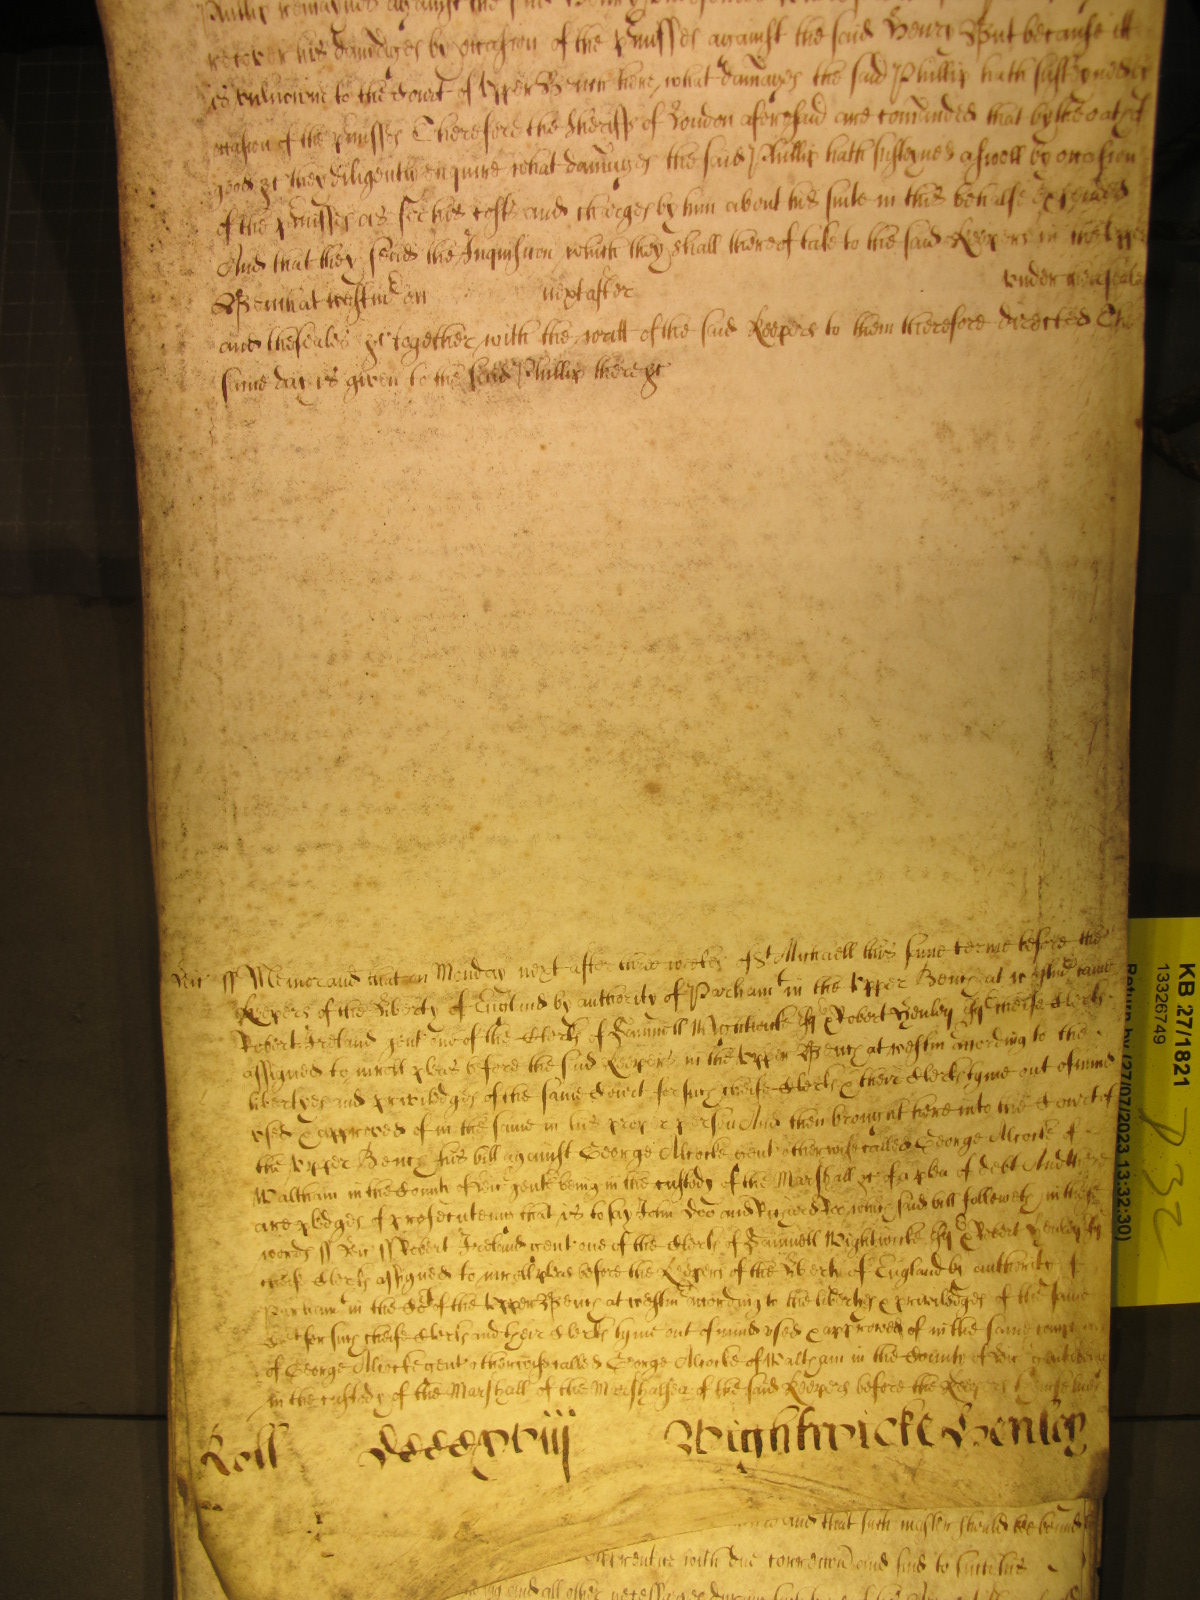 Phillip remaynes against the said Henry
recover his damages by occasion of the p'misses against the said Henry But because itt
is unknowne to the Court of Upper Bench here, what damages the said Phillip hath susteyned by
occasion of the p'misses Therefore the Sheriffs of London aforesaid are comanded that by the oathes of
good &c they diligently enquire what damages the said Phillip hath susteyned aswell by occasion
of the p'misses as for his costs and charges by him about his suite in this behalfe expended
And that they send the Inquisicon which they shall thereof take to the said Keepers in the Upper
Bench at Westm' on next after under
and the seales &c together with the writt of the said Keepers to them therefore directed The
same day is given to the said Phillip there &c
ss Memorand that on Monday next after three weekes of St Michaell this same terme before the
Keepers of the Liberty of England by authority of Parliamt in the Upper Bench at Westm' came
Robert Ireland gent one of the Clerks of Samuell Wightwicke Esq & Robert Henley Esq cheife Clerke
assigned to inroll pleas before the said Keepers in the Upper Bench at Westm' according to the
libertyes and priviledges of the same Court for such cheife Clerks & their Clerks tyme out of mind
used & approved of in the same in his proper person And then brought here into the Court of
the Upper Bench his bill against George Alcocke gent otherwise called George Alcocke of
Waltham in the County of gent being in the custody of the Marshall &c of a plea of debt And there
are pledges of prosecuteing that is to say John Doo and Richard Roo, which said bill followeth in these
words ss ss Robert Ireland gent one of the Clerks of Samuell Wightwicke Esq & Robert Henley Esq
cheife Clerks assigned to inroll pleas before the Keepers of the Liberty of England by authority of
Parliamt in the Court of the Upper Bench at Westm' according to the libertyes & priviledges of the same
Court for such cheife Clerks and their Clerks tyme out of mind used & approved of in the same
of George Alcocke gent otherwise called George Alcocke of Waltham in the County of gent being
in the custody of the Marshall of the Marshalsea of the said Keepers before the Keepers themselves
Roll Wightwicke Henley
and that such master should
Apprentice with due correccon and find to
and all other necessaries dureing
KB 27/1821
13326749
Return by (27/07/2023 13:32:30)